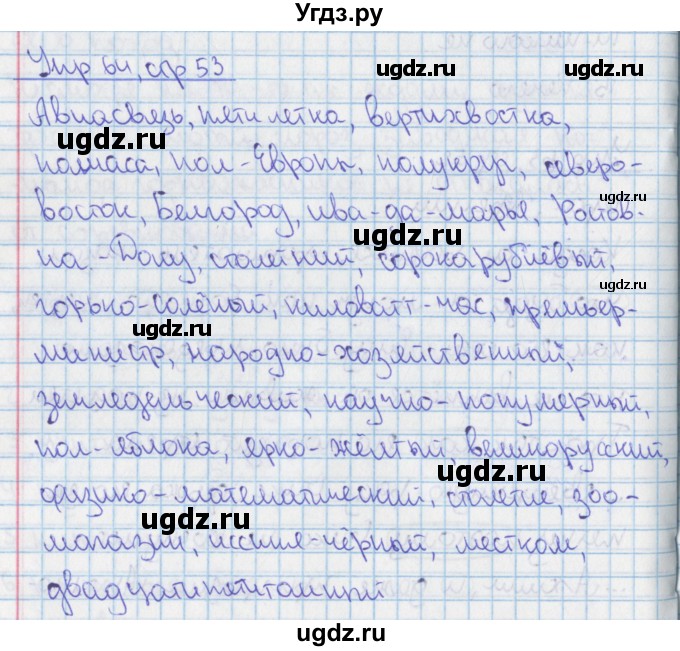 Угдз.ру
Упр 64, стр 53
ugdz.ru
ugdz.ru
Авиасвязь, пятилетка, вертихвостка,
ugdz.ru
полчаса, пол-Европы, полукруг, северо-
ugdz.ru
восток, Белгород, ива-да-марья, Ростов-
ugdz.ru
на-Дону, столетний, сорокарублёвый,
горько-солёный, киловатт-час, премьер-
ugdz.ru
ugdz.ru
министр, народно-хозяйственный,
земледельческий, научно-популярный,
пол-яблока, ярко-жёлтый, великорусский,
ugdz.ru
физико-математический, столетие, зоо-
ugdz.ru
ugdz.ru
магазин, иссиня-чёрный, местком,
двадцатипятитомный
ugdz.ru